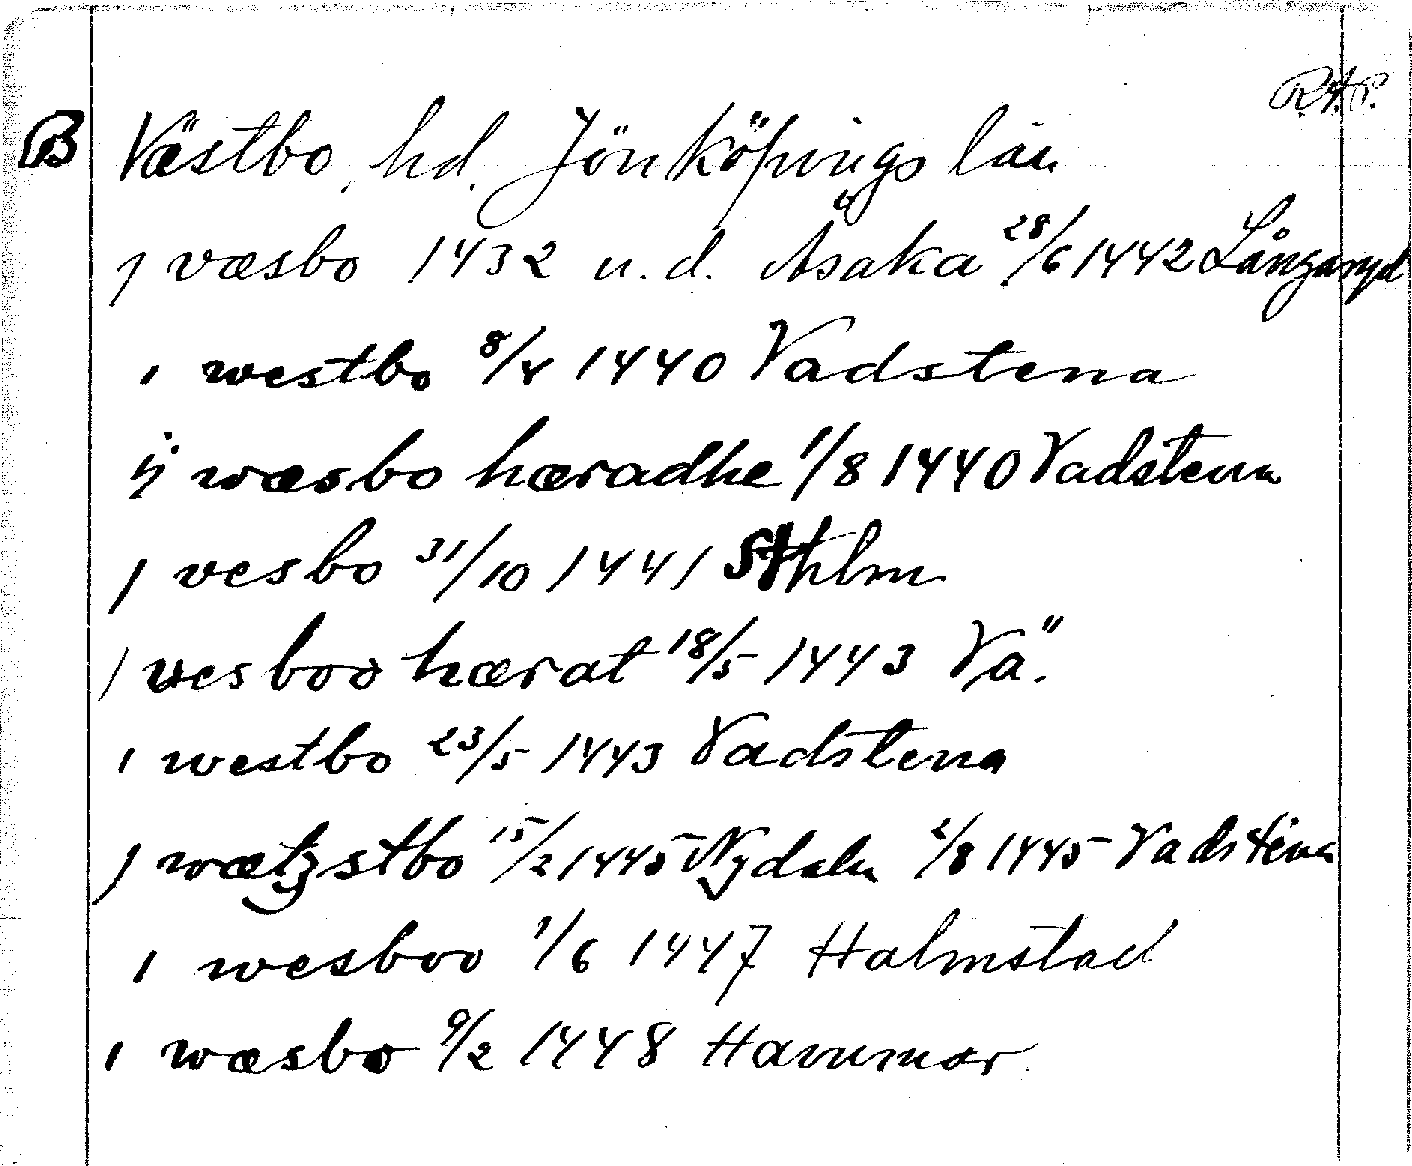 R.A.P.
B Västbo hd. Jönköpings län
j væsbo 1432 u.d. Åsaka 28/6 1442 Långaryd
i westbo 8/4 1440 Vadstena
ij wæsbo hæradhe 1/8 1440 Vadstena
j vesbo 31/10 1441 Sthlm
j vesboo hærat 18/5 1443 Vä.
i westbo 23/5 1443 Vadstena
j wætzstbo 15/2 1445 Nydala 2/8 1445 Vadstena
i wesboo 1/6 1447 Halmstad
i wæsbo 9/2 1448